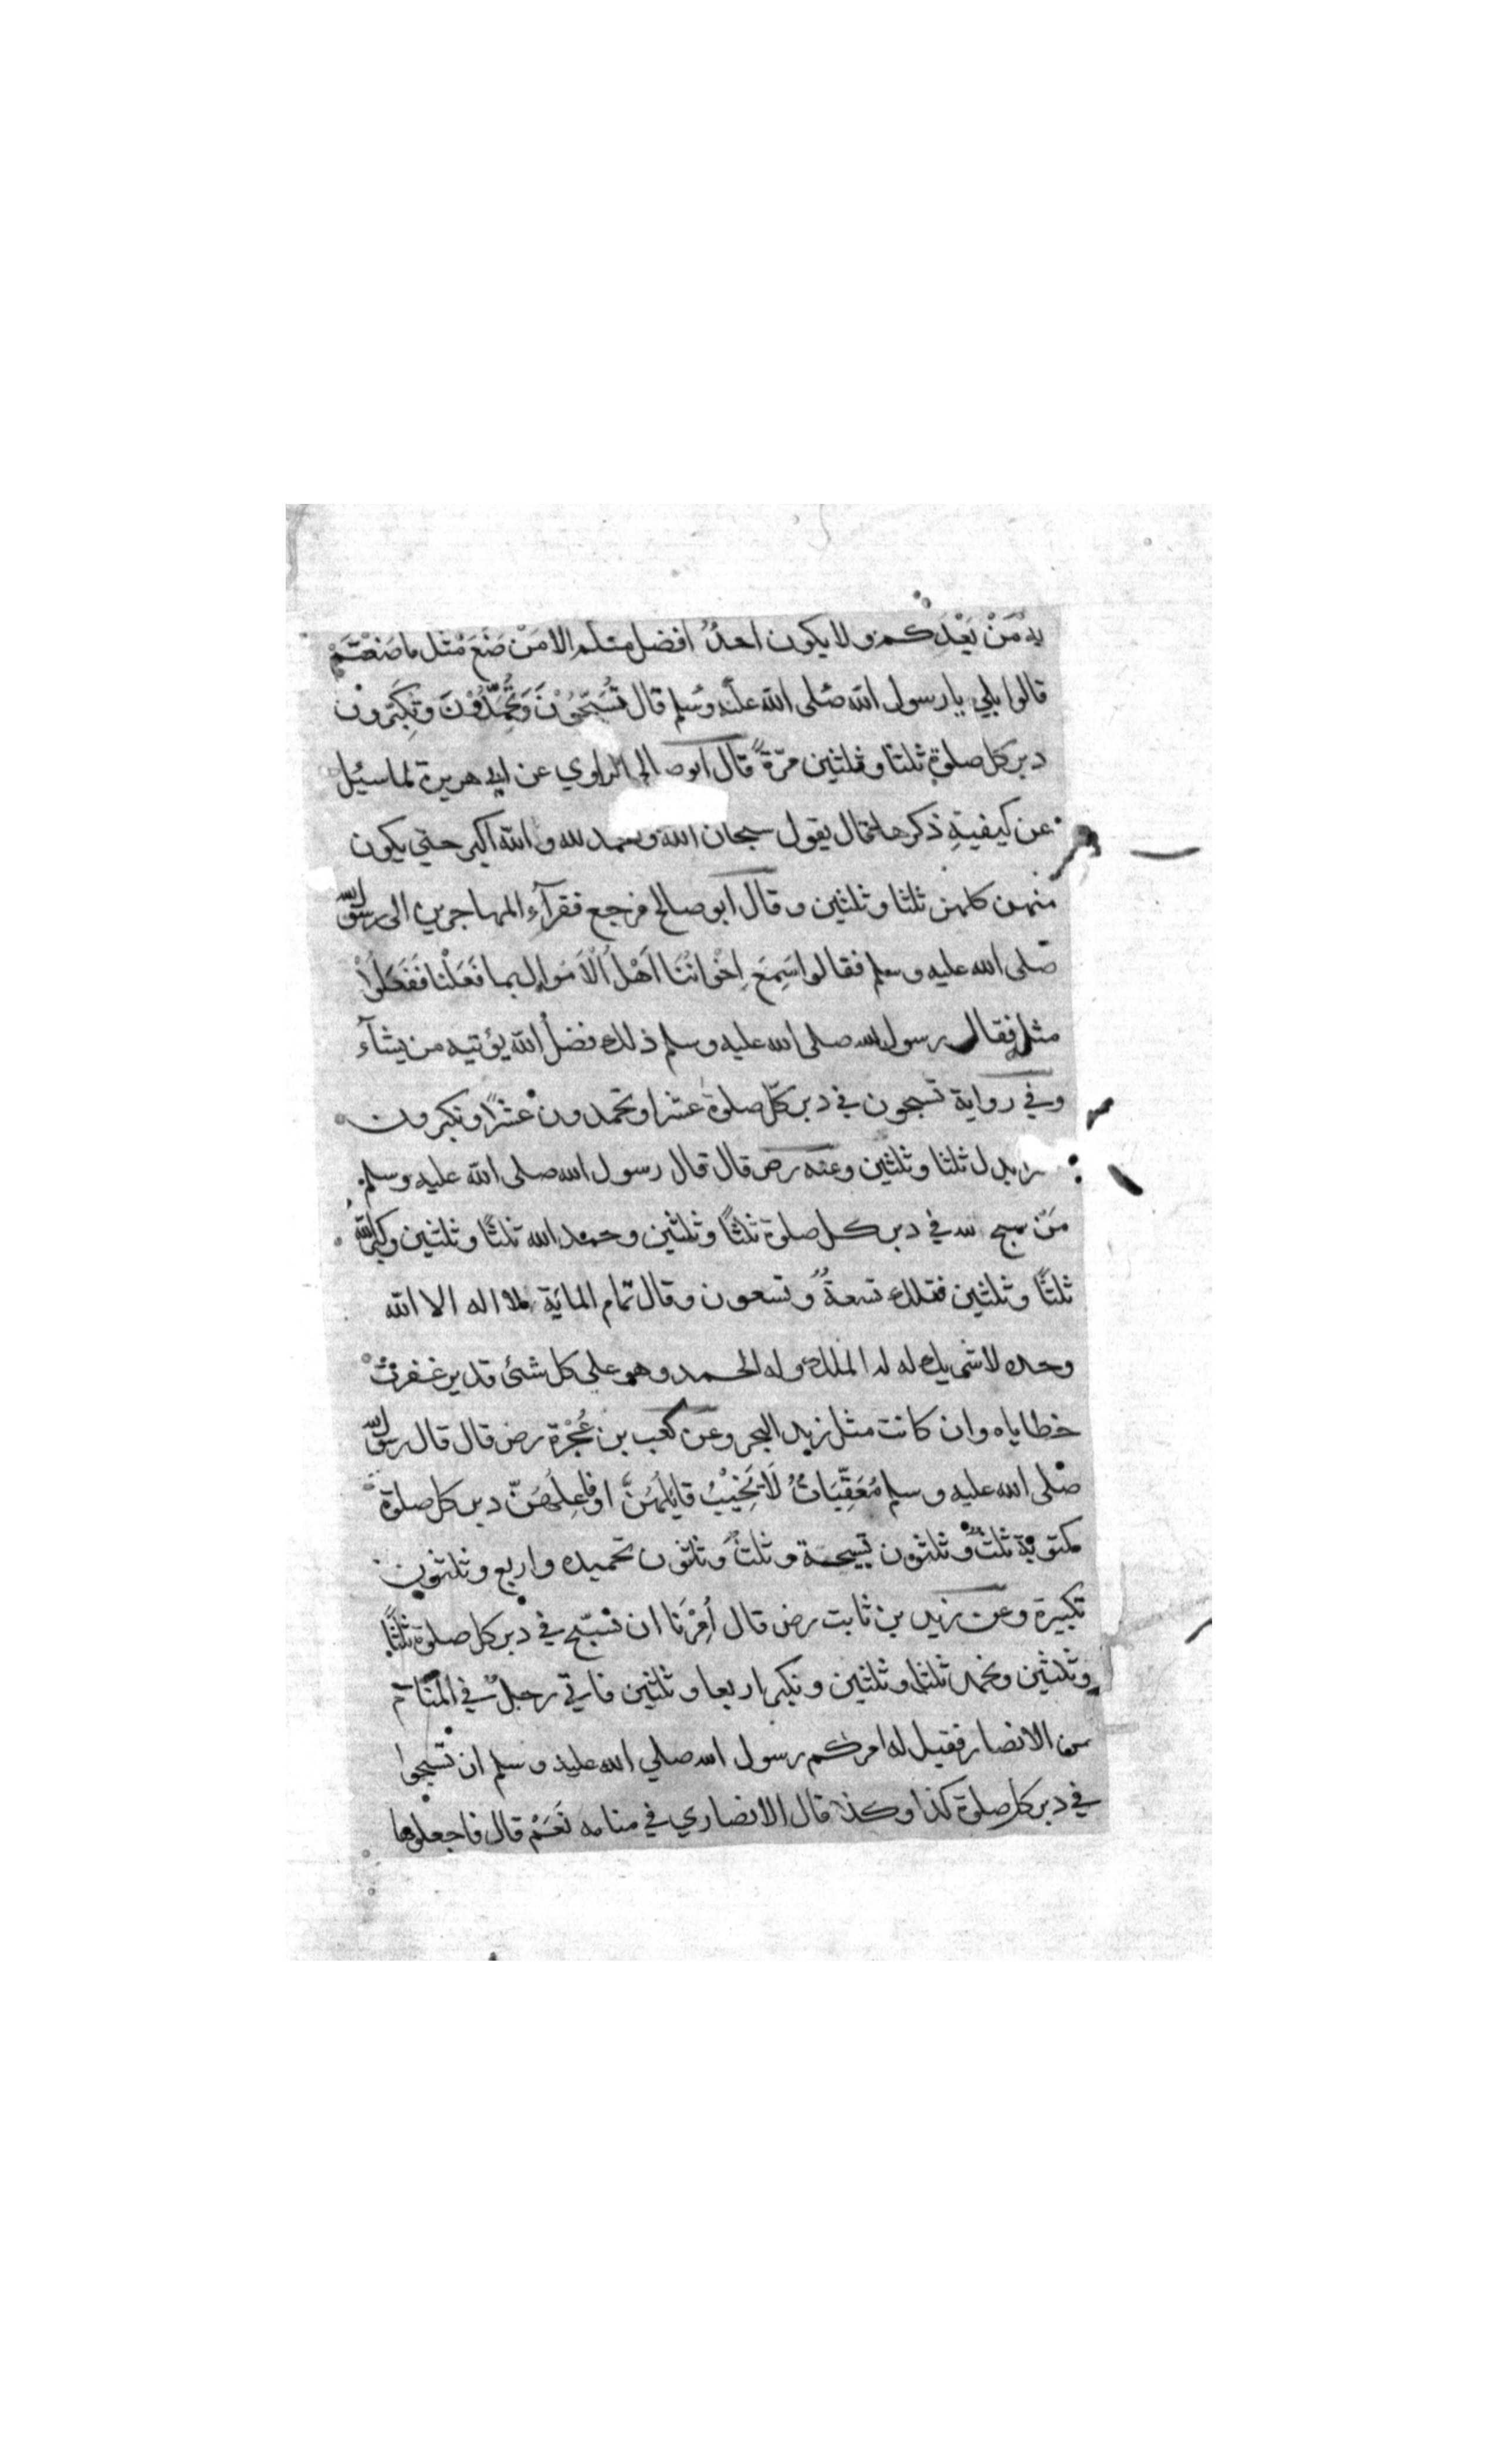 به مَنْ بَعْدَكم ولا يكون احدٌ افضل منكم الا مَنْ صَنَعَ مثل ما صَنَعْتُمْ
قالوا بلي يا رسول الله صلى الله عليه وسلم قال تُسَبِّحُوْنَ وَتُحَمِّدُوْنَ وَتُكَبِّرون
دبر كل صلوة ثلثا وثلثين مرّةً قال ابو صالح الراوي عن ابي هريرة لما سئل
عن كيفيةِ ذكرها قال يقول سبحان الله والحمد لله والله اكبر حتي يكون
منهن كلهن ثلثا وثلثين وقال ابو صالح فرجع فقرآء المهاجرين الى رسول الله
صلى الله عليه وسلم فقالوا سَمِعَ اِخْوَانُنَا اَهْلُ الْاَمْوالِ بما فَعَلْنَا فَفَعَلُوْا
مثله فقال رسول الله صلى الله عليه وسلم ذلك فضلُ الله يؤتيه من يشآء
وفي رواية تسبحون في دبر كلّ صلوة عشرا وتحمدون عشرًا وتكبرون
بدل ثلثا وثلثين وعنه رض قال قال رسول الله صلى الله عليه وسلم
مَنْ سبح الله في دبر كل صلوة ثلثًا وثلثين وحمد الله ثلثًا وثلثين وكبر الله
ثلثًا وثلثين فتلك تسعةٌ وتسعون وقال تمام المايَة لا اله الا الله
وحده لا شريك له له الملك وله الحمد وهو علي كل شئ قدير غفرتْ
خطاياه وان كانت مثل زبد البحر وعن كعب بن عُجْرة رض قال قال رسول الله
صلى الله عليه وسلم مُعَقِّبَاتٌ لَا يَخِيْبُ قائلُهُنَّ او فاعِلُهُنّ دبر كل صلوة
مكتوبة ثلثٌ وثلثون تسبيحة وثلثٌ وثلثون تحميده واربع وثلثون
تكبيرة وعن زيد بن ثابت رض قال أُمِرْنَا ان نسبّح في دبر كل صلوة ثلثًا
وثلثين ونحمد ثلثا وثلثين ونكبر اربعا وثلثين فاتي رجلٌ في المنام
من الانصار فقيل له امركم رسول الله صلي الله عليه وسلم ان تسبحوا
في دبر كل صلوة كذا وكذا قال الانصاري في منامه نَعَمْ قال فاجعلوها